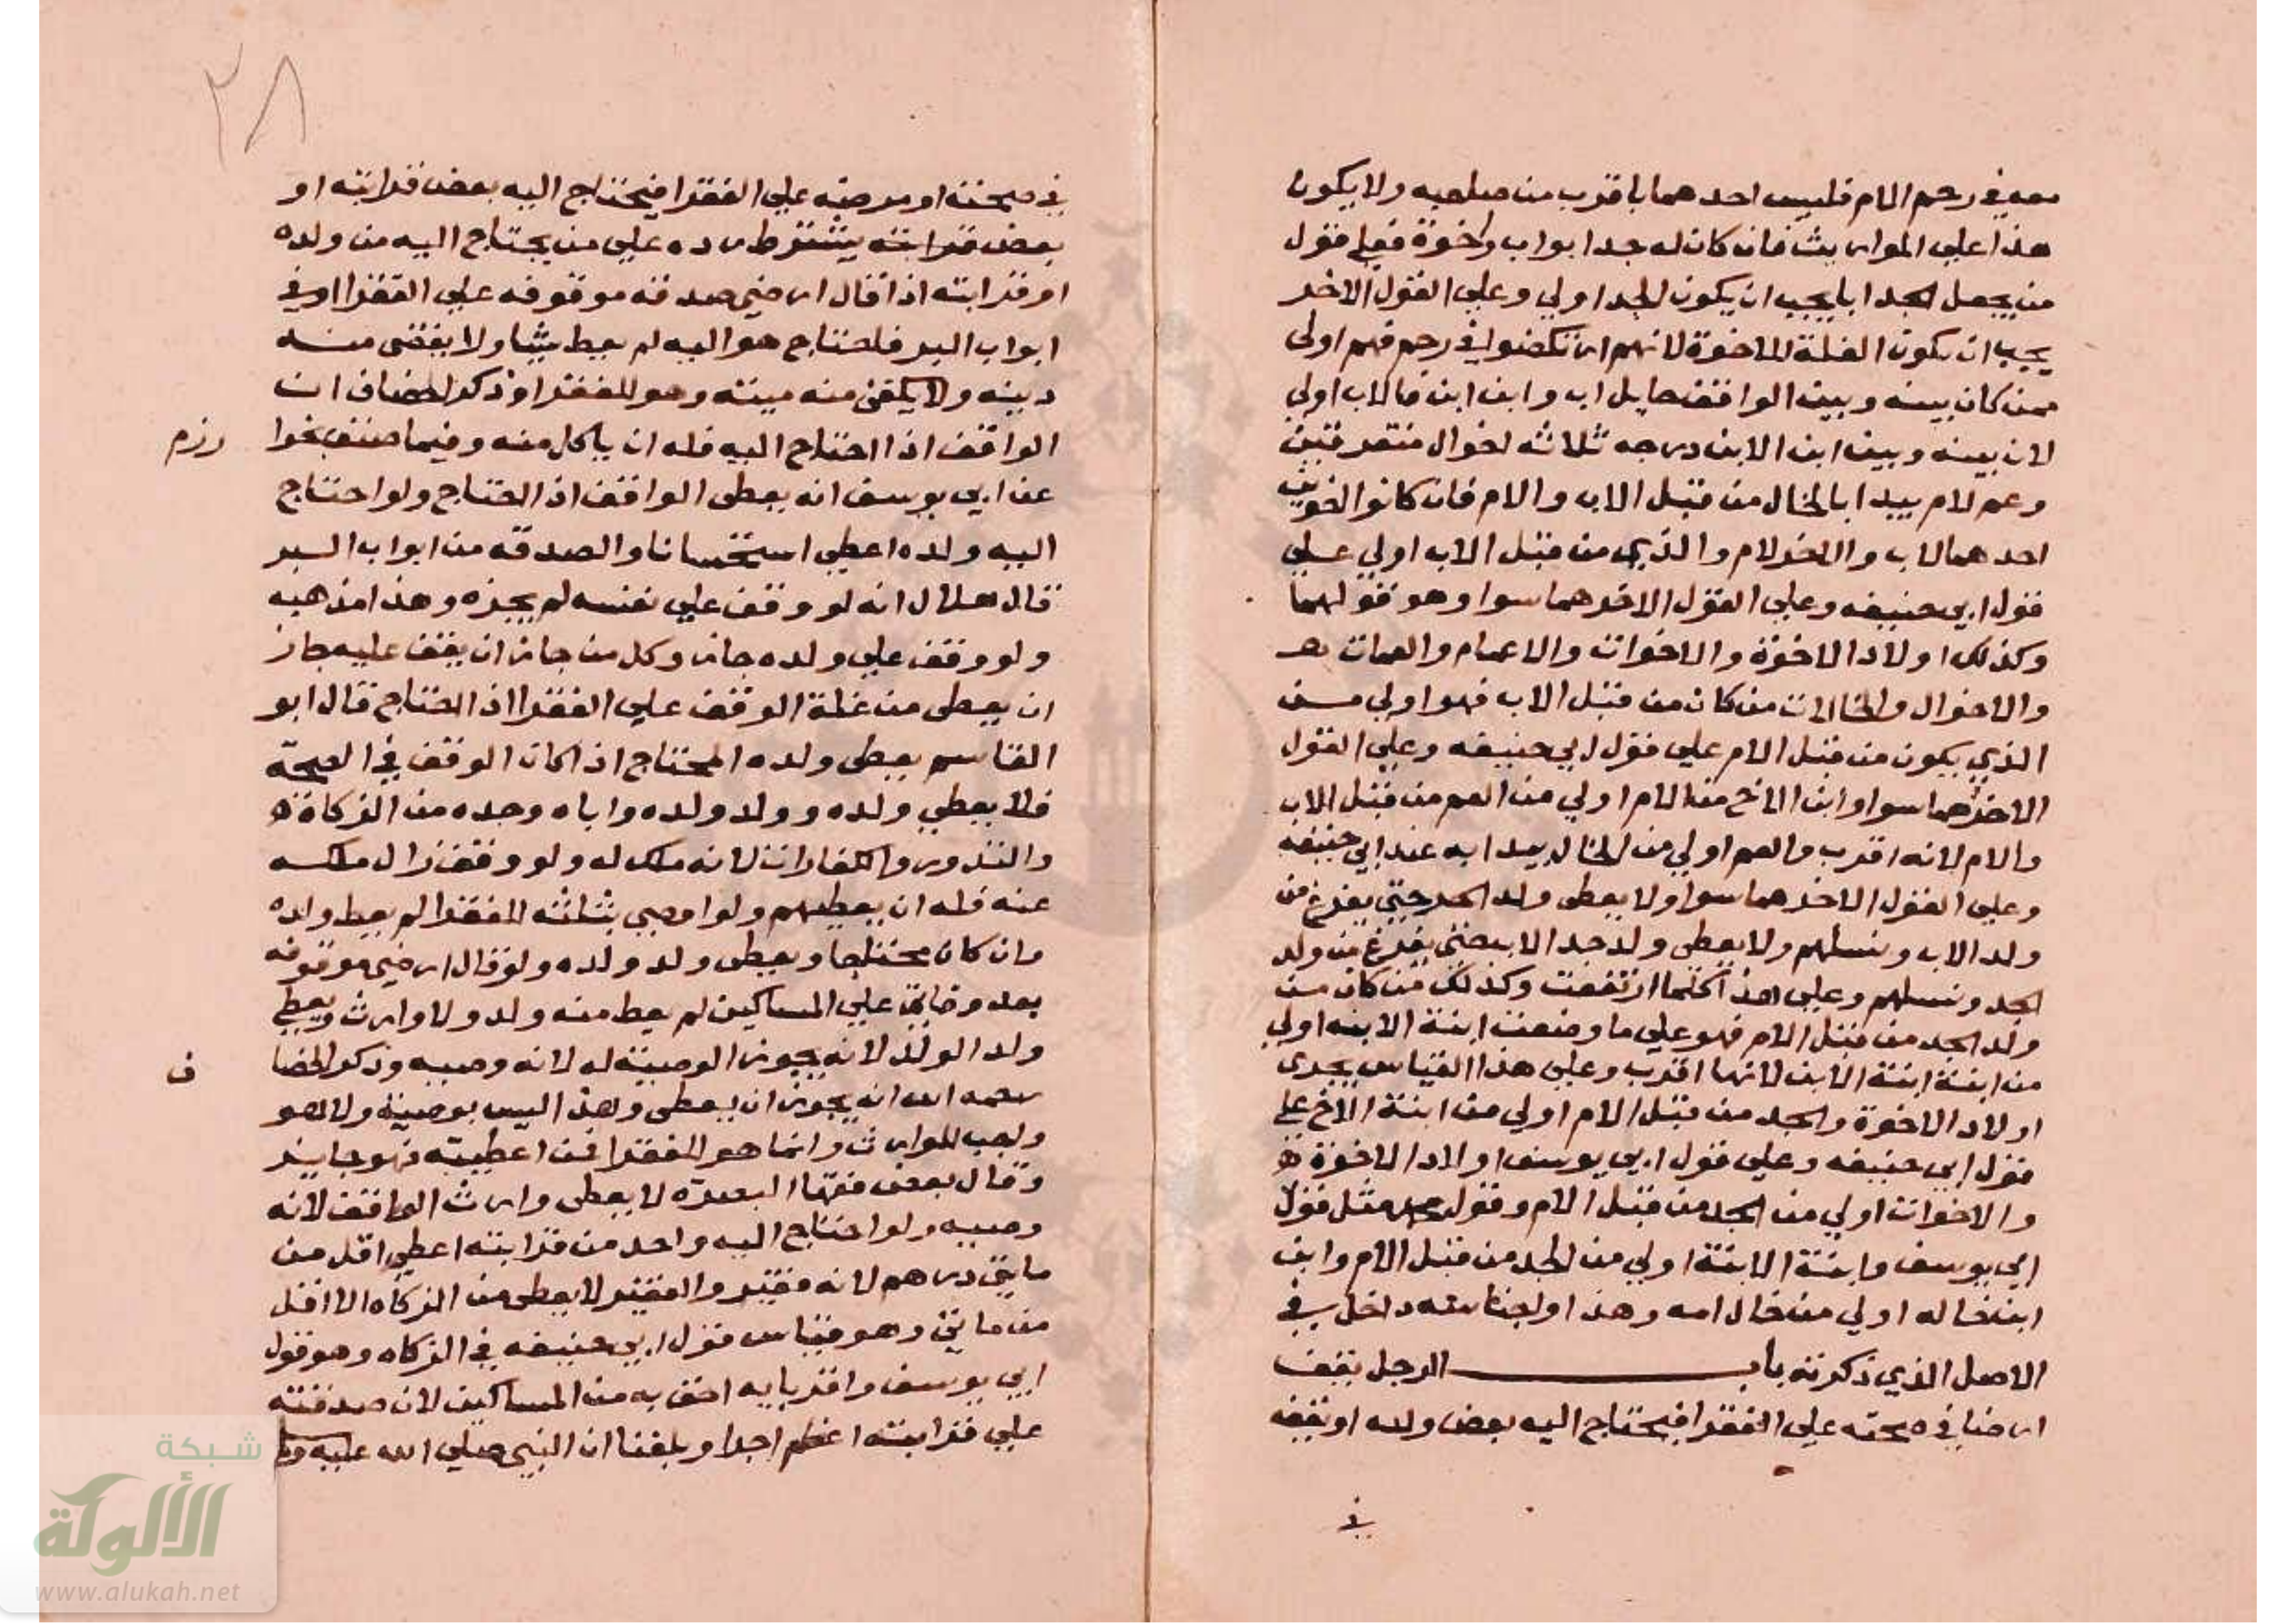 معه في رحم الام فليس احدهما باقرب من صاحبه ولا يكون
هذا علي المواريث فان كان له جد ابو اب واخوة فعلي قول
من يجعل الجد ابا يجب ان يكون الجد اولي وعلي القول الاخر
يجب ان يكون الغلة للاخوة لانهم ارتكضوا في رحم فهم اولي
ممن كان بينه وبين الواقف حايل اب وابن ابن فالاب اولي
لان بينه وبين ابن الابن درجه ثلاثه اخوال متفرقين
وعم لام يبدا بالخال من قبل الاب والام فان كانوا اخوين
احدهما لاب والاخر لام والذي من قبل الاب اولي علي
قول ابي حنيفه وعلي القول الاخر هما سوا وهو قولهما
وكذلك اولاد الاخوة والاخوات والاعمام والعمات
والاخوال والخالات من كان من قبل الاب فهو اولي من
الذي يكون من قبل الام علي قول ابي حنيفه وعلي القول
الاخر هما سوا وابن الاخ من الام اولي من العم من قبل الاب
والام لانه اقرب والعم اولي من الخال يبدا به عند ابي حنيفه
وعلي القول الاخر هما سوا ولا يعطى ولد الجد حتي يفرغ من
ولد الاب ونسلهم ولا يعطى ولد جد الاب حتي يفرغ من ولد
الجد ونسلهم وعلي هذا كلما ارتفعت وكذلك من كان من
ولد الجد من قبل الام فهو علي ما وضعت ابنة الابنه اولي
من ابنة ابنة الابن لانها اقرب وعلي هذا القياس يجري
اولاد الاخوة والجد من قبل الام اولي من ابنة الاخ علي
قول ابي حنيفه وعلي قول ابي يوسف اولاد الاخوة
والاخوات اولي من الجد من قبل الام وقول محمد مثل قول
ابي يوسف وابنة الابنة اولي من الجد من قبل الام وابن
ابن خاله اولي من خال امه وهذا داخل في
الاصل الذي ذكرته باب الرجل يقف
ارضا في صحته علي الفقرا فيحتاج اليه بعض ولده او يقفه
في
٢٨
في صحته او مرضه علي الفقرا فيحتاج اليه بعض قرابته او
بعض قرابته يشترط رده علي من يحتاج اليه من ولده
او قرابته اذا قال ارضي صدقه موقوفه علي الفقرا او في
ابواب البر فاحتاج هو اليه لم يعط شيا ولا يقضى منه
دينه ولا منه ميته وهو للفقرا وذكر الخصاف ان
الواقف اذا احتاج اليه فله ان ياكل منه وفيما
عن ابي يوسف انه يعطى الواقف اذا احتاج ولو احتاج
اليه ولده اعطي استحسانا والصدقه من ابواب البر
قال هلال انه لو وقف علي نفسه لم يجزه وهذا مذهبه
ولو وقف علي ولده جاز وكل من جاز ان يقف عليه جاز
ان يعطى من غلة الوقف علي الفقرا اذا احتاج قال ابو
القاسم يعطى ولده المحتاج اذا كان الوقف في الصحة
فلا يعطي ولده وولد ولده واباه وجده من الزكاة
والنذور والكفارات لانه ملك له ولو وقف زال ملكه
عنه فله ان يعطيهم ولو اوصي بثلثه للفقرا لم يعط ولده
وان كان محتاجا ويعطى ولد ولده ولو قال ارضي موقوفه
بعد وفاتي علي المساكين لم يعط منه ولد ولا وارث ويعطي
ولد الولد لانه يجوز الوصية له لانه وصيه وذكر الخصا
ف
رحمه الله انه يجوز ان يعطى وهذا ليس بوصية ولا هو
واجب للوارث وانما هو للفقرا فمن اعطيته فهو جايز
وقال بعض فقها البصرة لا يعطى وارث الواقف لانه
وصيه ولو احتاج اليه واحد من قرابته اعطي اقل من
مايتي درهم لانه فقير والفقير لا يعطى من الزكاه الا اقل
من مايتي وهو قياس قول ابي حنيفه في الزكاه وهو قول
ابي يوسف واقربايه احق به من المساكين لان صدقته
علي قرابته اعظم اجرا وبلغنا ان النبي صلي الله عليه
شبكة
الألوكة
www.alukah.net